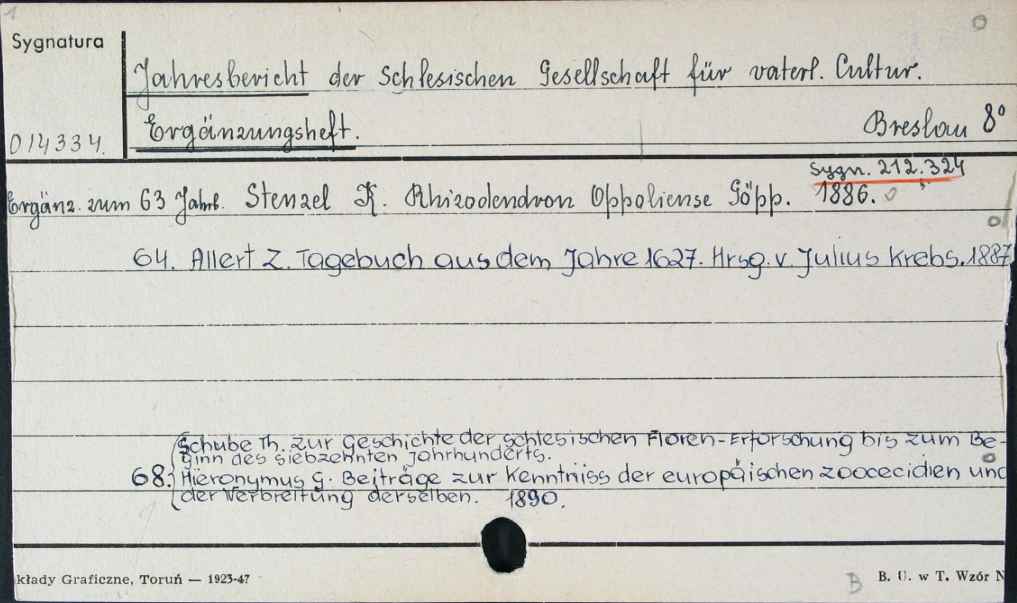 1
Sygnatura
Jahresbericht der Schlesischen Gesellschaft für vaterl. Cultur.
014334.
Ergänzungsheft.
Breslau 8°
Sygn. 212.324
Ergänz. zum 63 Jahrl. Stenzel K. Rhizodendron Oppoliense Göpp. 1886.
64. Allert Z. Tagebuch aus dem Jahre 1627. Hrsg. v. Julius Krebs. 1887
Schube Th. Zur Geschichte der schlesischen Floren-Erforschung bis zum Be-
ginn des siebzehnten Jahrhunderts.
68: Hieronymus G. Beiträge zur Kenntniss der europäischen Zoocecidien und
der Verbreitung derselben. 1890.
kłady Graficzne, Toruń — 1923-47
B
B. U. w T. Wzór N